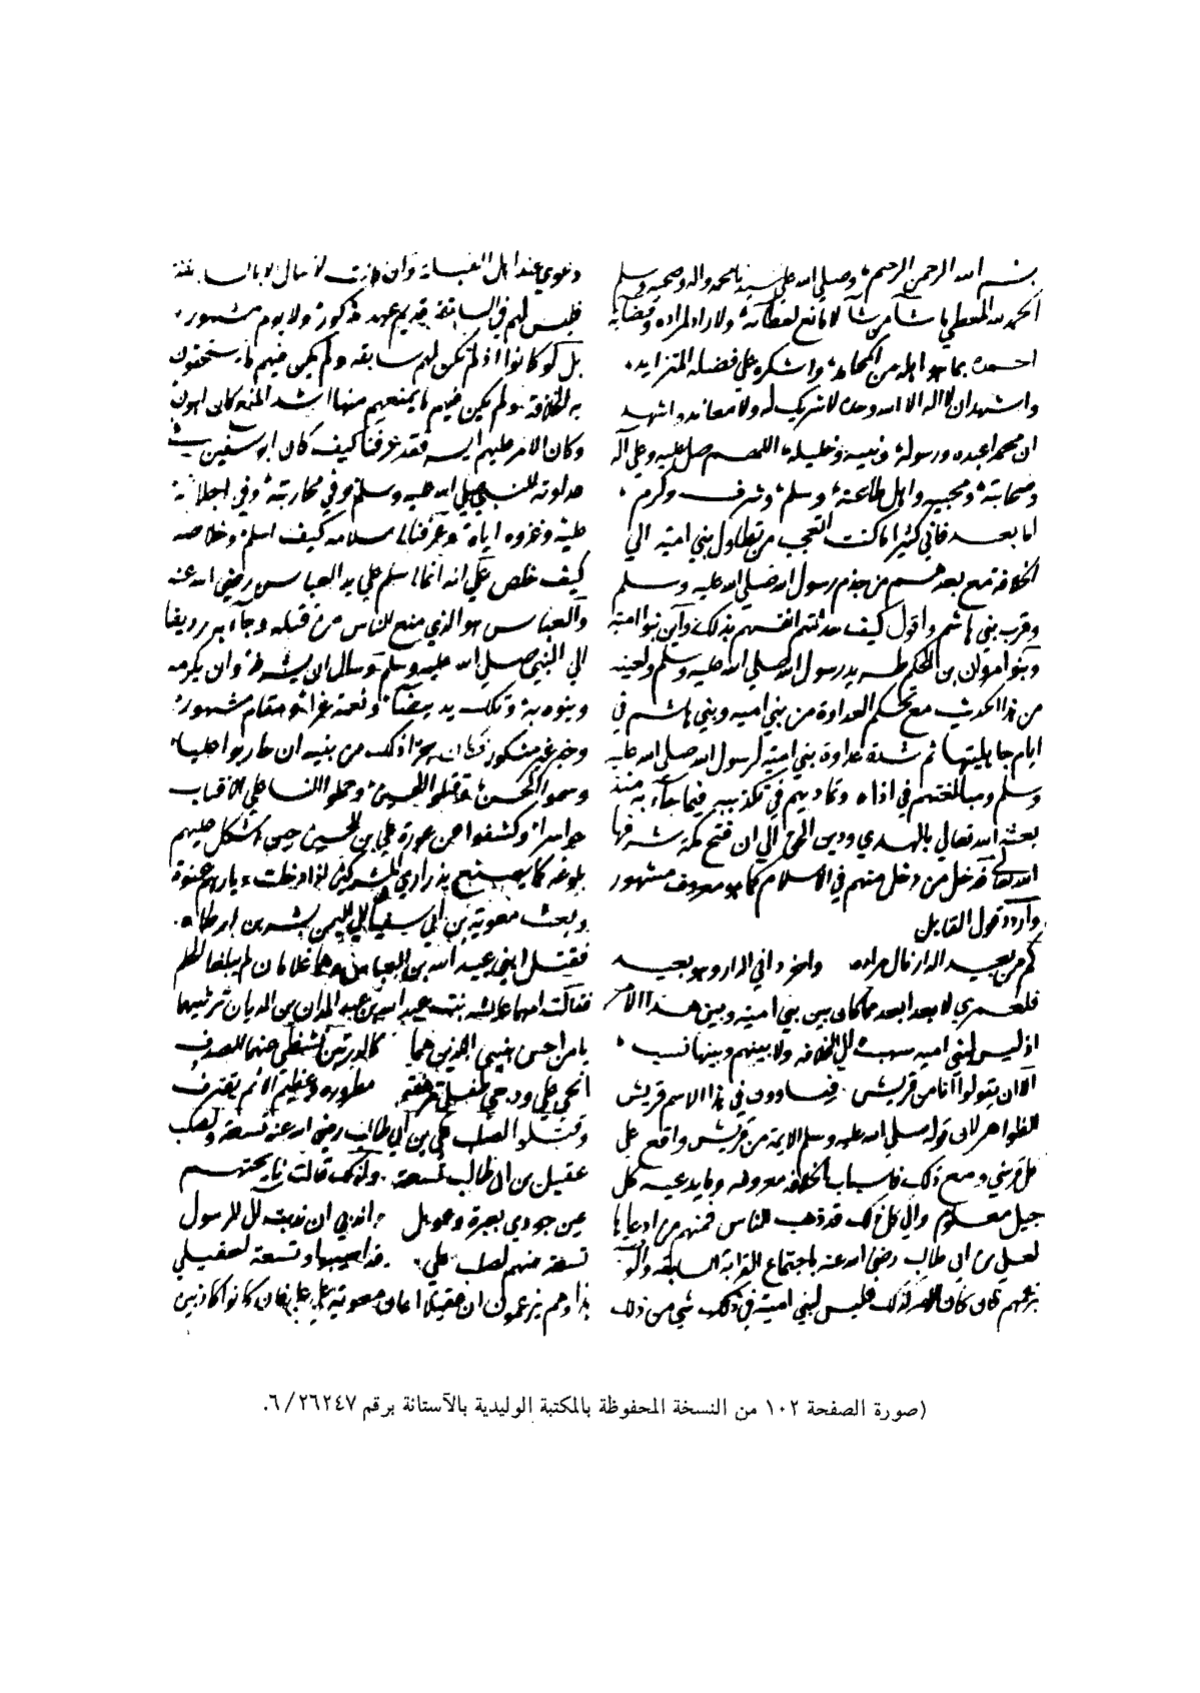 بسم الله الرحمن الرحيم وصلى الله على سيدنا محمد واله وصحبه وسلم
الحمد لله المعطي ما شآ من شآ لا مانع لعطآئه ولا راد لمراده وقضائه
احمده بما هو اهله من المحامد واشكره على فضله المتزايد
واشهد ان لا اله الا الله وحده لا شريك له ولا معاند واشهد
ان محمدا عبده ورسوله ونبيه وخليله اللهم صل عليه وعلى آله
وصحابته ومحبيه واهل طاعته وسلم وشرف وكرم
اما بعد فاني كثيرا ما كنت اتعجب من تطاول بني امية الي
الخلافة مع بعدهم من جذم رسول الله صلى الله عليه وسلم
وقرب بني هاشم واقول كيف حدثتهم انفسهم بذلك وأين بنو امية
وبنو مروان بن الحكم طريد رسول الله صلى الله عليه وسلم ولعينه
من هذا الحديث مع تحكم العداوة من بني اميه وبني هاشم في
ايام جاهليتها ثم شدة عداوة بني امية لرسول الله صلى الله عليه
وسلم ومبالغتهم في اذاه وتماديهم في تكذيبه فيما جآء به منذ
بعثه الله تعالى بالهدي ودين الحق الي ان فتح مكة شرفها
الله تعالى فدخل من دخل منهم في الاسلام كما هو معروف مشهور
وأردد قول القايل
كم من بعيد الدار نال مراده واخر داني الدار وهو بعيد
فلعمري لا بعد ابعد مما كان بين بني امية وبين هذا الامر
اذ ليس لبني اميه سبب الى الخلافه ولا بينهم وبينها نسب
الا ان يقولوا انا من قريش فيساوون في هذا الاسم قريش
الظواهر لان قوله صلى الله عليه وسلم الايمة من قريش واقع على
كل قرشي ومع ذلك فاسباب الخلافه معروفه وما يدعيه كل
جيل معلوم والي كل ذلك قد ذهب الناس فمنهم من ادعاها
لعلي بن ابي طالب رضى الله عنه باجتماع القرابة السابقة والوصية
بزعمهم فان كان الامر كذلك فليس لبني امية في ذلك شي من ذلك
دعوي عند اهل القبلة وان كانت لا تنال الا بالسابقة
فليس لهم في السابقة قديم عهد مذكور ولا يوم مشهور
بل لو كانوا اذ لم تكن لهم سابقه ولم يكن فيهم ما يستحقون
به الخلافة ولم يكن فيهم ما يمنعهم منها اشد المنع كان اهون
وكان الامر عليهم ايسر فقد عرفنا كيف كان ابو سفين في
عداوته للنبي صلي الله عليه وسلم وفي محاربته وفي اجلابه
عليه وغزوه اياه وعرفنا اسلامه كيف اسلم وخلاصه
كيف خلص علي انه انما اسلم علي يد العباس رضي الله عنه
والعباس هو الذي منع الناس من قتله وجآء به رديفا
الي النبي صلى الله عليه وسلم وسال ان يشرفه وان يكرمه
وينوه به وتلك يد بيضآ ونعمة غرا ومقام مشهور
وخبر غير منكور فكان جزا ذلك من بنيه ان حاربوا عليا
وسموا الحسن وقتلوا الحسين وحملوا النسا على الاقتاب
حواسرا وكشفوا عن عورة علي بن الحسين حين اشكل عليهم
بلوغه كما يصنع بذراري المشركين اذا دخلت ديارهم عنوة
وبعث معوية بن ابي سفيان الي اليمن بسر بن ارطاه
فقتل ابني عبيد الله بن العباس وهما غلامان لم يبلغا الحلم
فقالت امهما عايشه بنت عبد الله بن عبد المدان بن الديان ترثيهما
يا من احس بنيي الذين هما كالدرتين تشظى عنهما الصدف
انحي علي ودجي طفلي مرهفة مطرورة وعظيم الاثم يقترف
وقتلوا لصلب علي بن ابي طالب رضي الله عنه تسعة ولصلب
عقيل بن ابي طالب تسعة ولذلك قالت نايحتهم
عين جودي بعبرة وعويل واندبي ان ندبت ال الرسول
تسعة منهم لصلب علي قد اصيبوا وتسعة لعقيل
هذا وهم يزعمون ان عقيلا اعان معوية على علي فان كانوا كاذبين
(صورة الصفحة ١٠٢ من النسخة المحفوظة بالمكتبة الوليدية بالآستانة برقم ٢٦٢٤٧/٦.